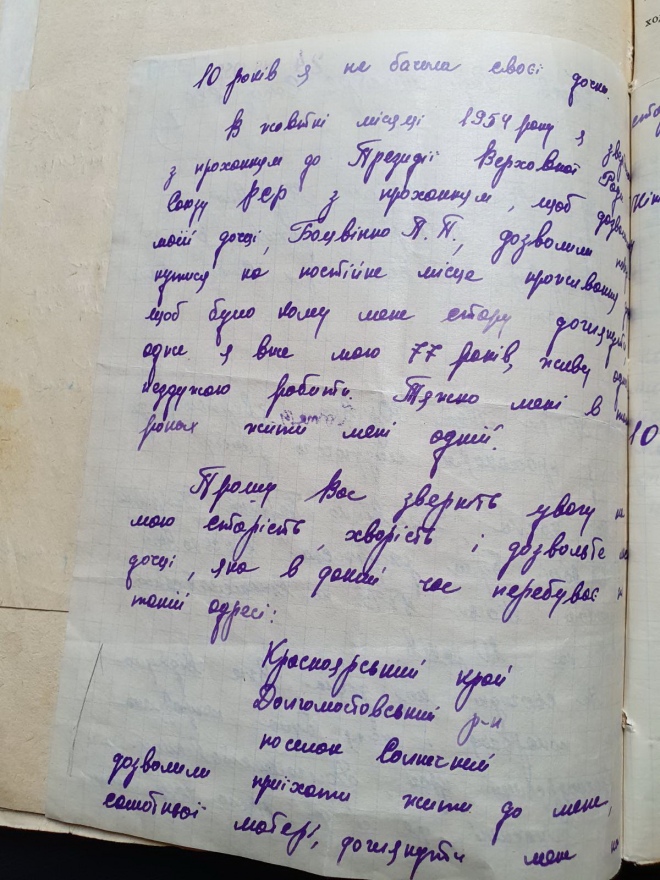 10 років я не бачила своєї дочки.
В жовтні місяці 1954 року я
з проханням до Президії Верховної Ради
Союзу РСР з проханням, щоб
моїй дочці, Боцвінко П. П., дозволили
на постійне місце проживання
щоб було кому мене стару доглянути
одна я вже маю 77 років, живу
нездужаю робити. Тяжко мені в
роках жити мені одній.
Прошу Вас зверніть увагу н
мою старість, хворість і дозвольте
дочці, яка в даний час перебуває н
такій адресі:
Красноярський край
Долгомостовський р-н
поселок Солнечний
дозволили приїхати жити до мене,
самотньої матері, доглянути мене на
10